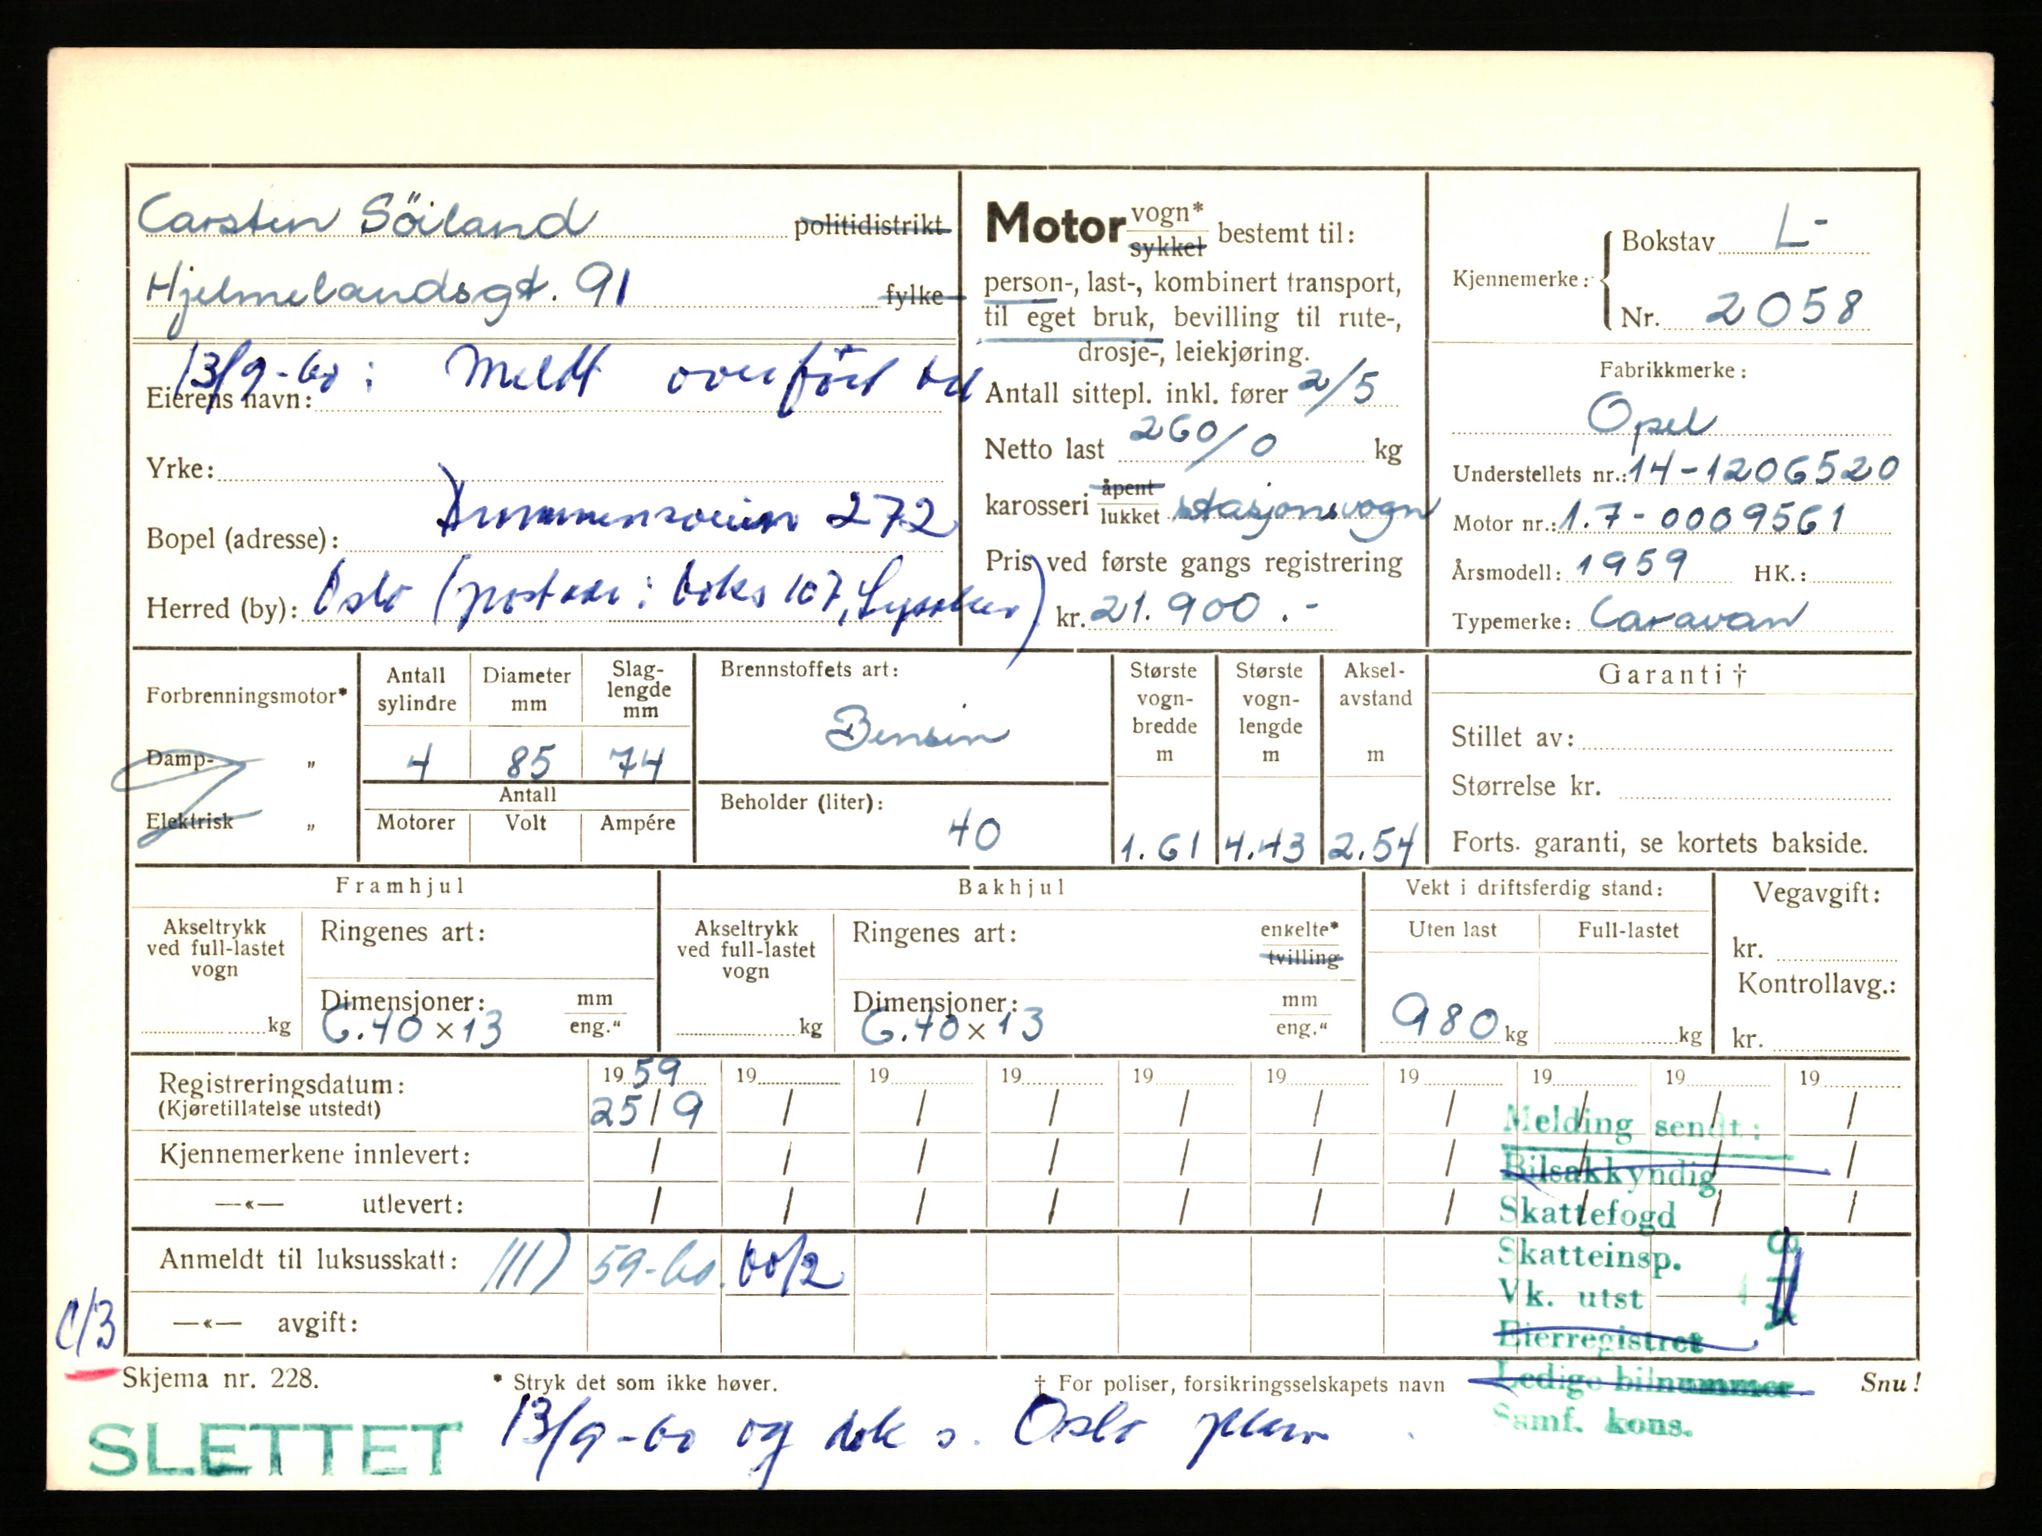 Carsten Söiland politidistrikt
Hjelmelandsgt. 91 fylke
13/9-60: Meldt overført til
Eierens navn:
Yrke:
Drammensveien 272
Bopel (adresse):
Herred (by): Oslo (postadr: boks 107, Lysaker)
Motor vogn* sykkel bestemt til:
person-, last-, kombinert transport,
til eget bruk, bevilling til rute-,
drosje-, leiekjøring.
Antall sittepl. inkl. fører 2/5
Netto last 260/0 kg
karosseri åpent lukket stasjonsvogn
Pris ved første gangs registrering
kr. 21.900.-
Kjennemerke: Bokstav L-
Nr. 2058
Fabrikkmerke:
Opel
Understellets nr.: 14-1206520
Motor nr.: 1.7-0009561
Årsmodell: 1959 HK.:
Typemerke: Caravan
Forbrenningsmotor*
Damp- „
Elektrisk „
Antall sylindre Diameter mm Slag-lengde mm
4 85 74
Antall
Motorer Volt Ampére
Brennstoffets art:
Bensin
Beholder (liter):
40
Største vogn-bredde m
1.61
Største vogn-lengde m
4.43
Aksel-avstand m
2.54
Garanti †
Stillet av:
Størrelse kr.
Forts. garanti, se kortets bakside.
Framhjul
Akseltrykk ved full-lastet vogn
kg
Ringenes art:
Dimensjoner: mm eng."
6.40 x 13
Bakhjul
Akseltrykk ved full-lastet vogn
kg
Ringenes art: enkelte* tvilling
Dimensjoner: mm eng."
6.40 x 13
Vekt i driftsferdig stand:
Uten last Full-lastet
980 kg kg
Vegavgift:
kr.
Kontrollavg.:
kr.
Registreringsdatum: 1959 19 19 19 19 19 19 19 19 19
(Kjøretillatelse utstedt) 25/9 / / / / / / / / /
Kjennemerkene innlevert: / / / / / / / / / /
—«— utlevert: / / / / / / / / / /
Anmeldt til luksusskatt: III) 59-60. 60/2
—«— avgift:
Melding sendt:
Bilsakkyndig
Skattefogd
Skatteinsp.
Vk. utst
Eierregistret
Ledige bilnummer
Samf. kons.
C/3
Skjema nr. 228. * Stryk det som ikke høver. † For poliser, forsikringsselskapets navn Snu!
SLETTET 13/9-60 og dok s. Oslo pkm